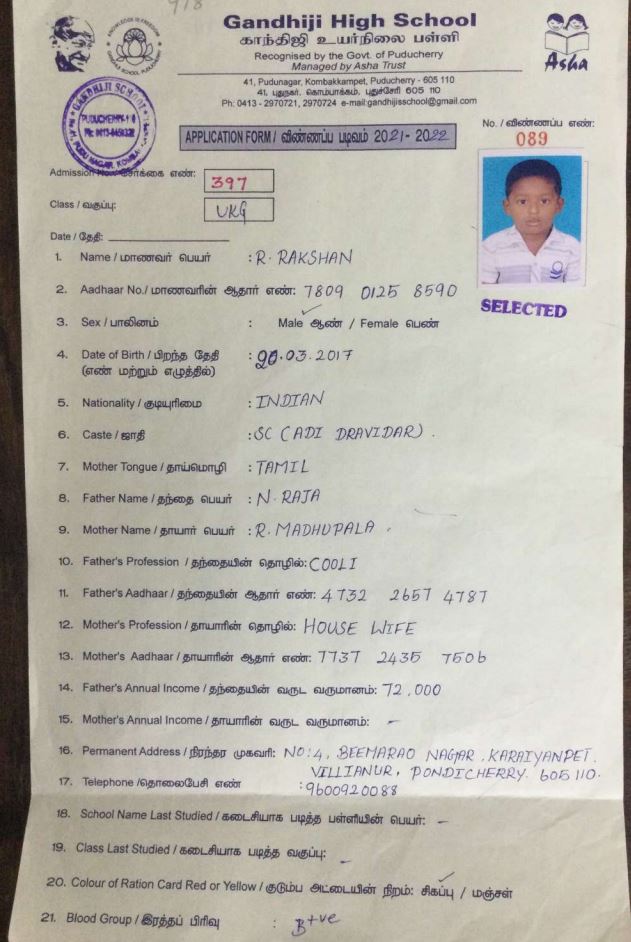 978
Gandhiji High School
காந்திஜி உயர்நிலை பள்ளி
Recognised by the Govt. of Puducherry
Managed by Asha Trust
Asha
41, Pudunagar, Kombakkampet, Puducherry - 605 110
41, புதுநகர், கொம்பாக்கம், புதுச்சேரி 605 110
Ph: 0413 - 2970721, 2970724 e-mail:gandhijisschool@gmail.com
GANDHIJI SCHOOL
PUDU NAGAR, KOMBA
No. / விண்ணப்ப எண்:
089
APPLICATION FORM / விண்ணப்ப படிவம் 2021 - 2022
Admission No. சேர்க்கை எண்: 397
Class / வகுப்பு: UKG
Date / தேதி:
SELECTED
1. Name / மாணவர் பெயர் : R. RAKSHAN
2. Aadhaar No./ மாணவரின் ஆதார் எண்: 7809 0125 8590
3. Sex / பாலினம் : Male ஆண் / Female பெண்
4. Date of Birth / பிறந்த தேதி : 20.03.2017
(எண் மற்றும் எழுத்தில்)
5. Nationality / குடியுரிமை : INDIAN
6. Caste / ஜாதி : SC (ADI DRAVIDAR).
7. Mother Tongue / தாய்மொழி : TAMIL
8. Father Name / தந்தை பெயர் : N. RAJA
9. Mother Name / தாயார் பெயர் : R. MADHUPALA.
10. Father's Profession / தந்தையின் தொழில்: COOLI
11. Father's Aadhaar / தந்தையின் ஆதார் எண்: 4732 2657 4787
12. Mother's Profession / தாயாரின் தொழில்: HOUSE WIFE
13. Mother's Aadhaar / தாயாரின் ஆதார் எண்: 7737 2435 7506
14. Father's Annual Income / தந்தையின் வருட வருமானம்: 72,000
15. Mother's Annual Income / தாயாரின் வருட வருமானம்: -
16. Permanent Address / நிரந்தர முகவரி: NO:4, BEEMARAO NAGAR, KARAIYANPET.
VILLIANUR, PONDICHERRY. 605 110.
17. Telephone /தொலைபேசி எண் : 9600920088
18. School Name Last Studied / கடைசியாக படித்த பள்ளியின் பெயர்: -
19. Class Last Studied / கடைசியாக படித்த வகுப்பு: -
20. Colour of Ration Card Red or Yellow / குடும்ப அட்டையின் நிறம்: சிகப்பு / மஞ்சள்
21. Blood Group / இரத்தப் பிரிவு : B+ve